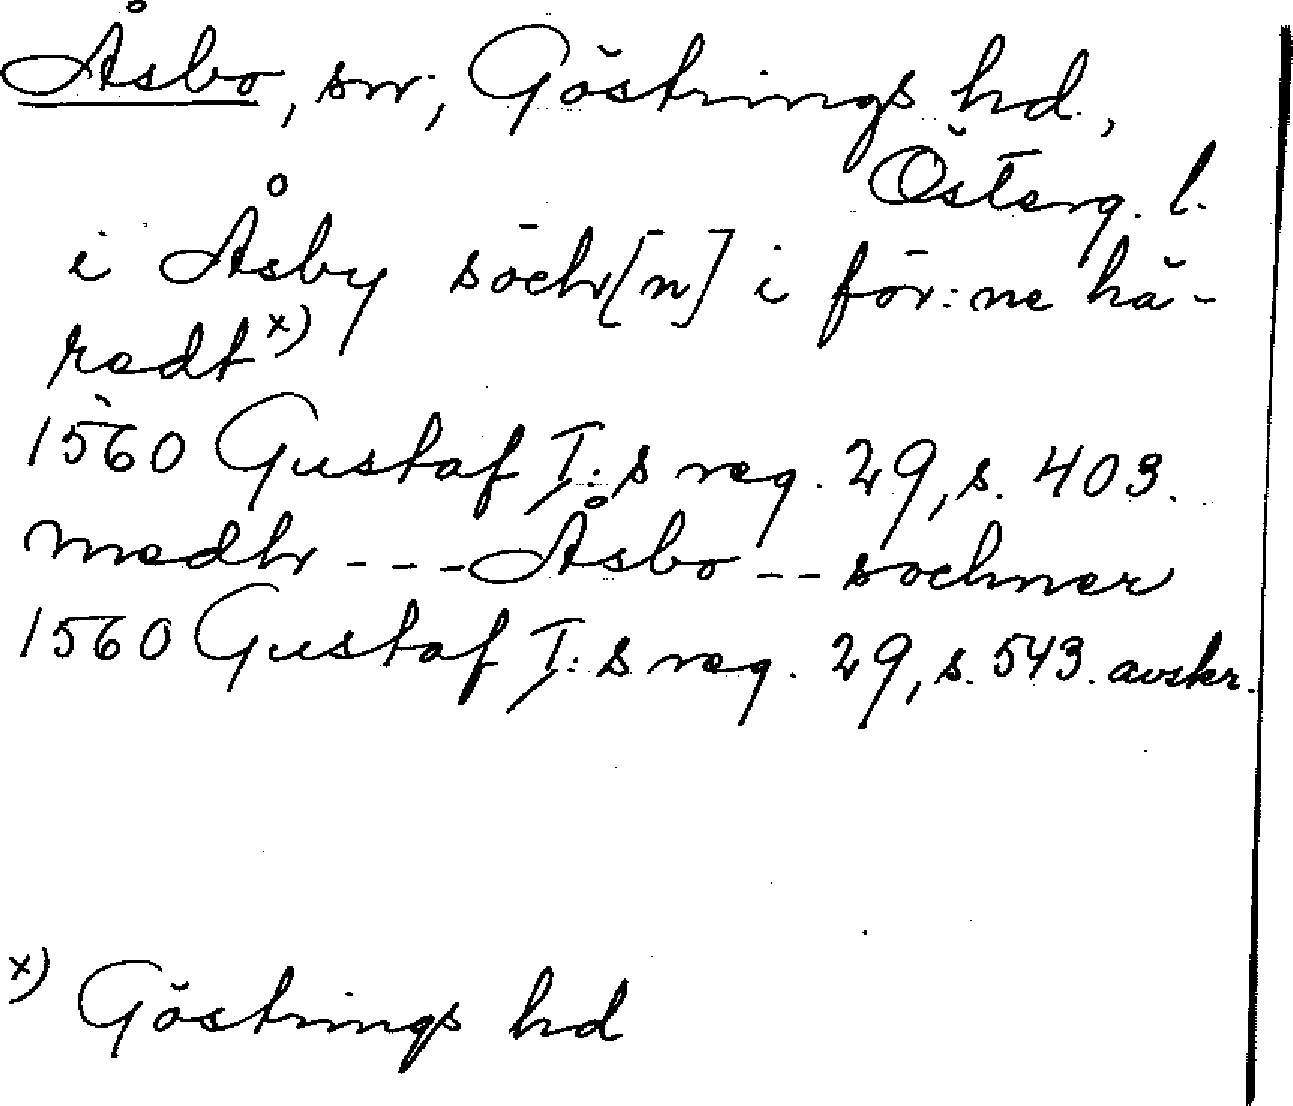 Åsbo, sn, Göstrings hd.,
Österg. l.
i Åsby sochr[n] i för:ne hä-
redt x)
1560 Gustaf I:s reg. 29, s. 403.
medhr --- Åsbo -- sochner
1560 Gustaf I:s reg. 29, s. 543. avskr.
x) Göstrings hd